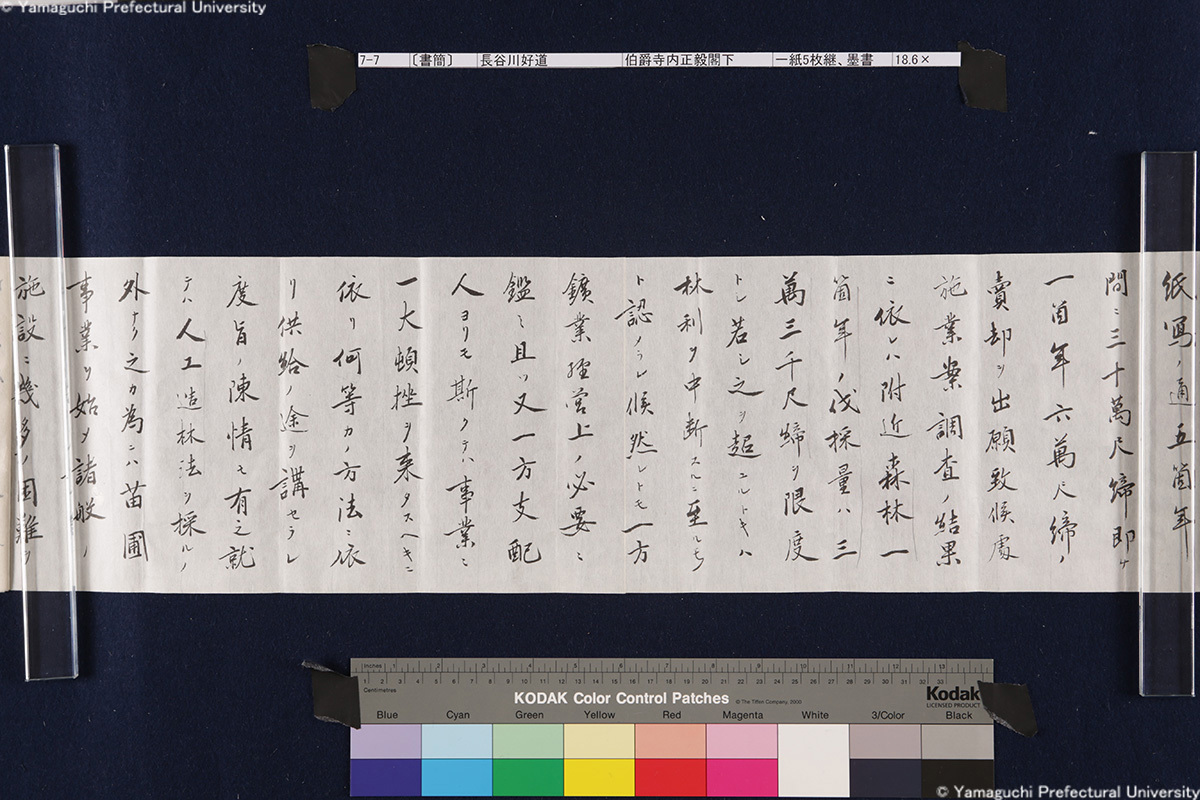 © Yamaguchi Prefectural University
7-7 〔書簡〕 長谷川好道 伯爵寺内正毅閣下 一紙5枚継、墨書 18.6×
紙写ノ通五箇年
間ニ三十萬尺締即ケ
一箇年六萬尺締ノ
賣却ヲ出願致候處
施業案調査ノ結果
ニ依レハ附近森林一
箇年ノ伐採量ハ三
萬三千尺締ヲ限度
トシ若シ之ヲ超ユルトキハ
林利ヲ中断スルニ至ルモノ
ト認メラレ候然レトモ一方
鑛業經営上ノ必要ニ
鑑ミ且ツ又一方支配
人ヨリモ斯クテハ事業ニ
一大頓挫ヲ来タスヘキニ
依リ何等カノ方法ニ依
リ供給ノ途ヲ講セラレ
度旨ノ陳情モ有之就
テハ人工造林法ヲ採ルノ
外ナク之カ為ニハ苗圃
事業ヲ始メ諸般ノ
施設ニ幾多ノ困難ヲ
Inches 1 2 3 4 5 6 7 8 9 10 11 12 13
Centimetres 1 2 3 4 5 6 7 8 9 10 11 12 13 14 15 16 17 18 19 20 21 22 23 24 25 26 27 28 29 30 31 32 33
KODAK Color Control Patches © The Tiffen Company, 2000 Kodak
LICENSED PRODUCT
Blue Cyan Green Yellow Red Magenta White 3/Color Black
© Yamaguchi Prefectural University